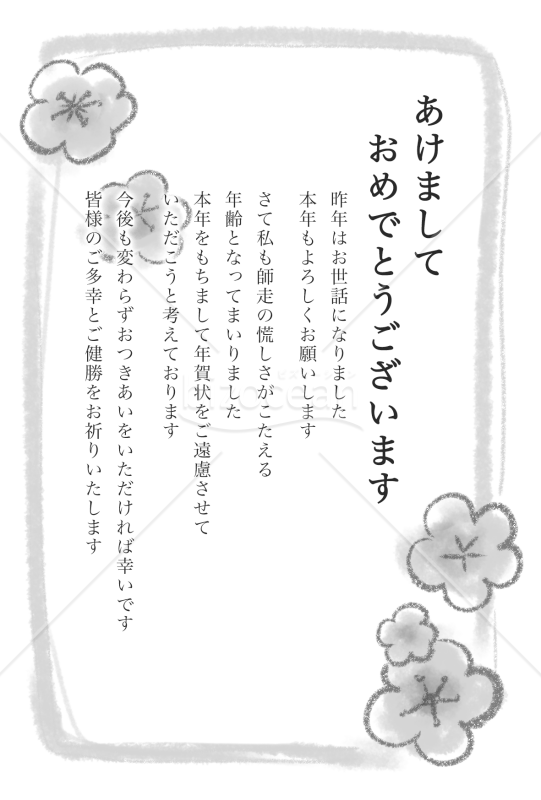 あけまして
おめでとうございます
昨年はお世話になりました
本年もよろしくお願いします
さて私も師走の慌しさがこたえる
年齢となってまいりました
本年をもちまして年賀状をご遠慮させて
いただこうと考えております
今後も変わらずおつきあいをいただければ幸いです
皆様のご多幸とご健勝をお祈りいたします